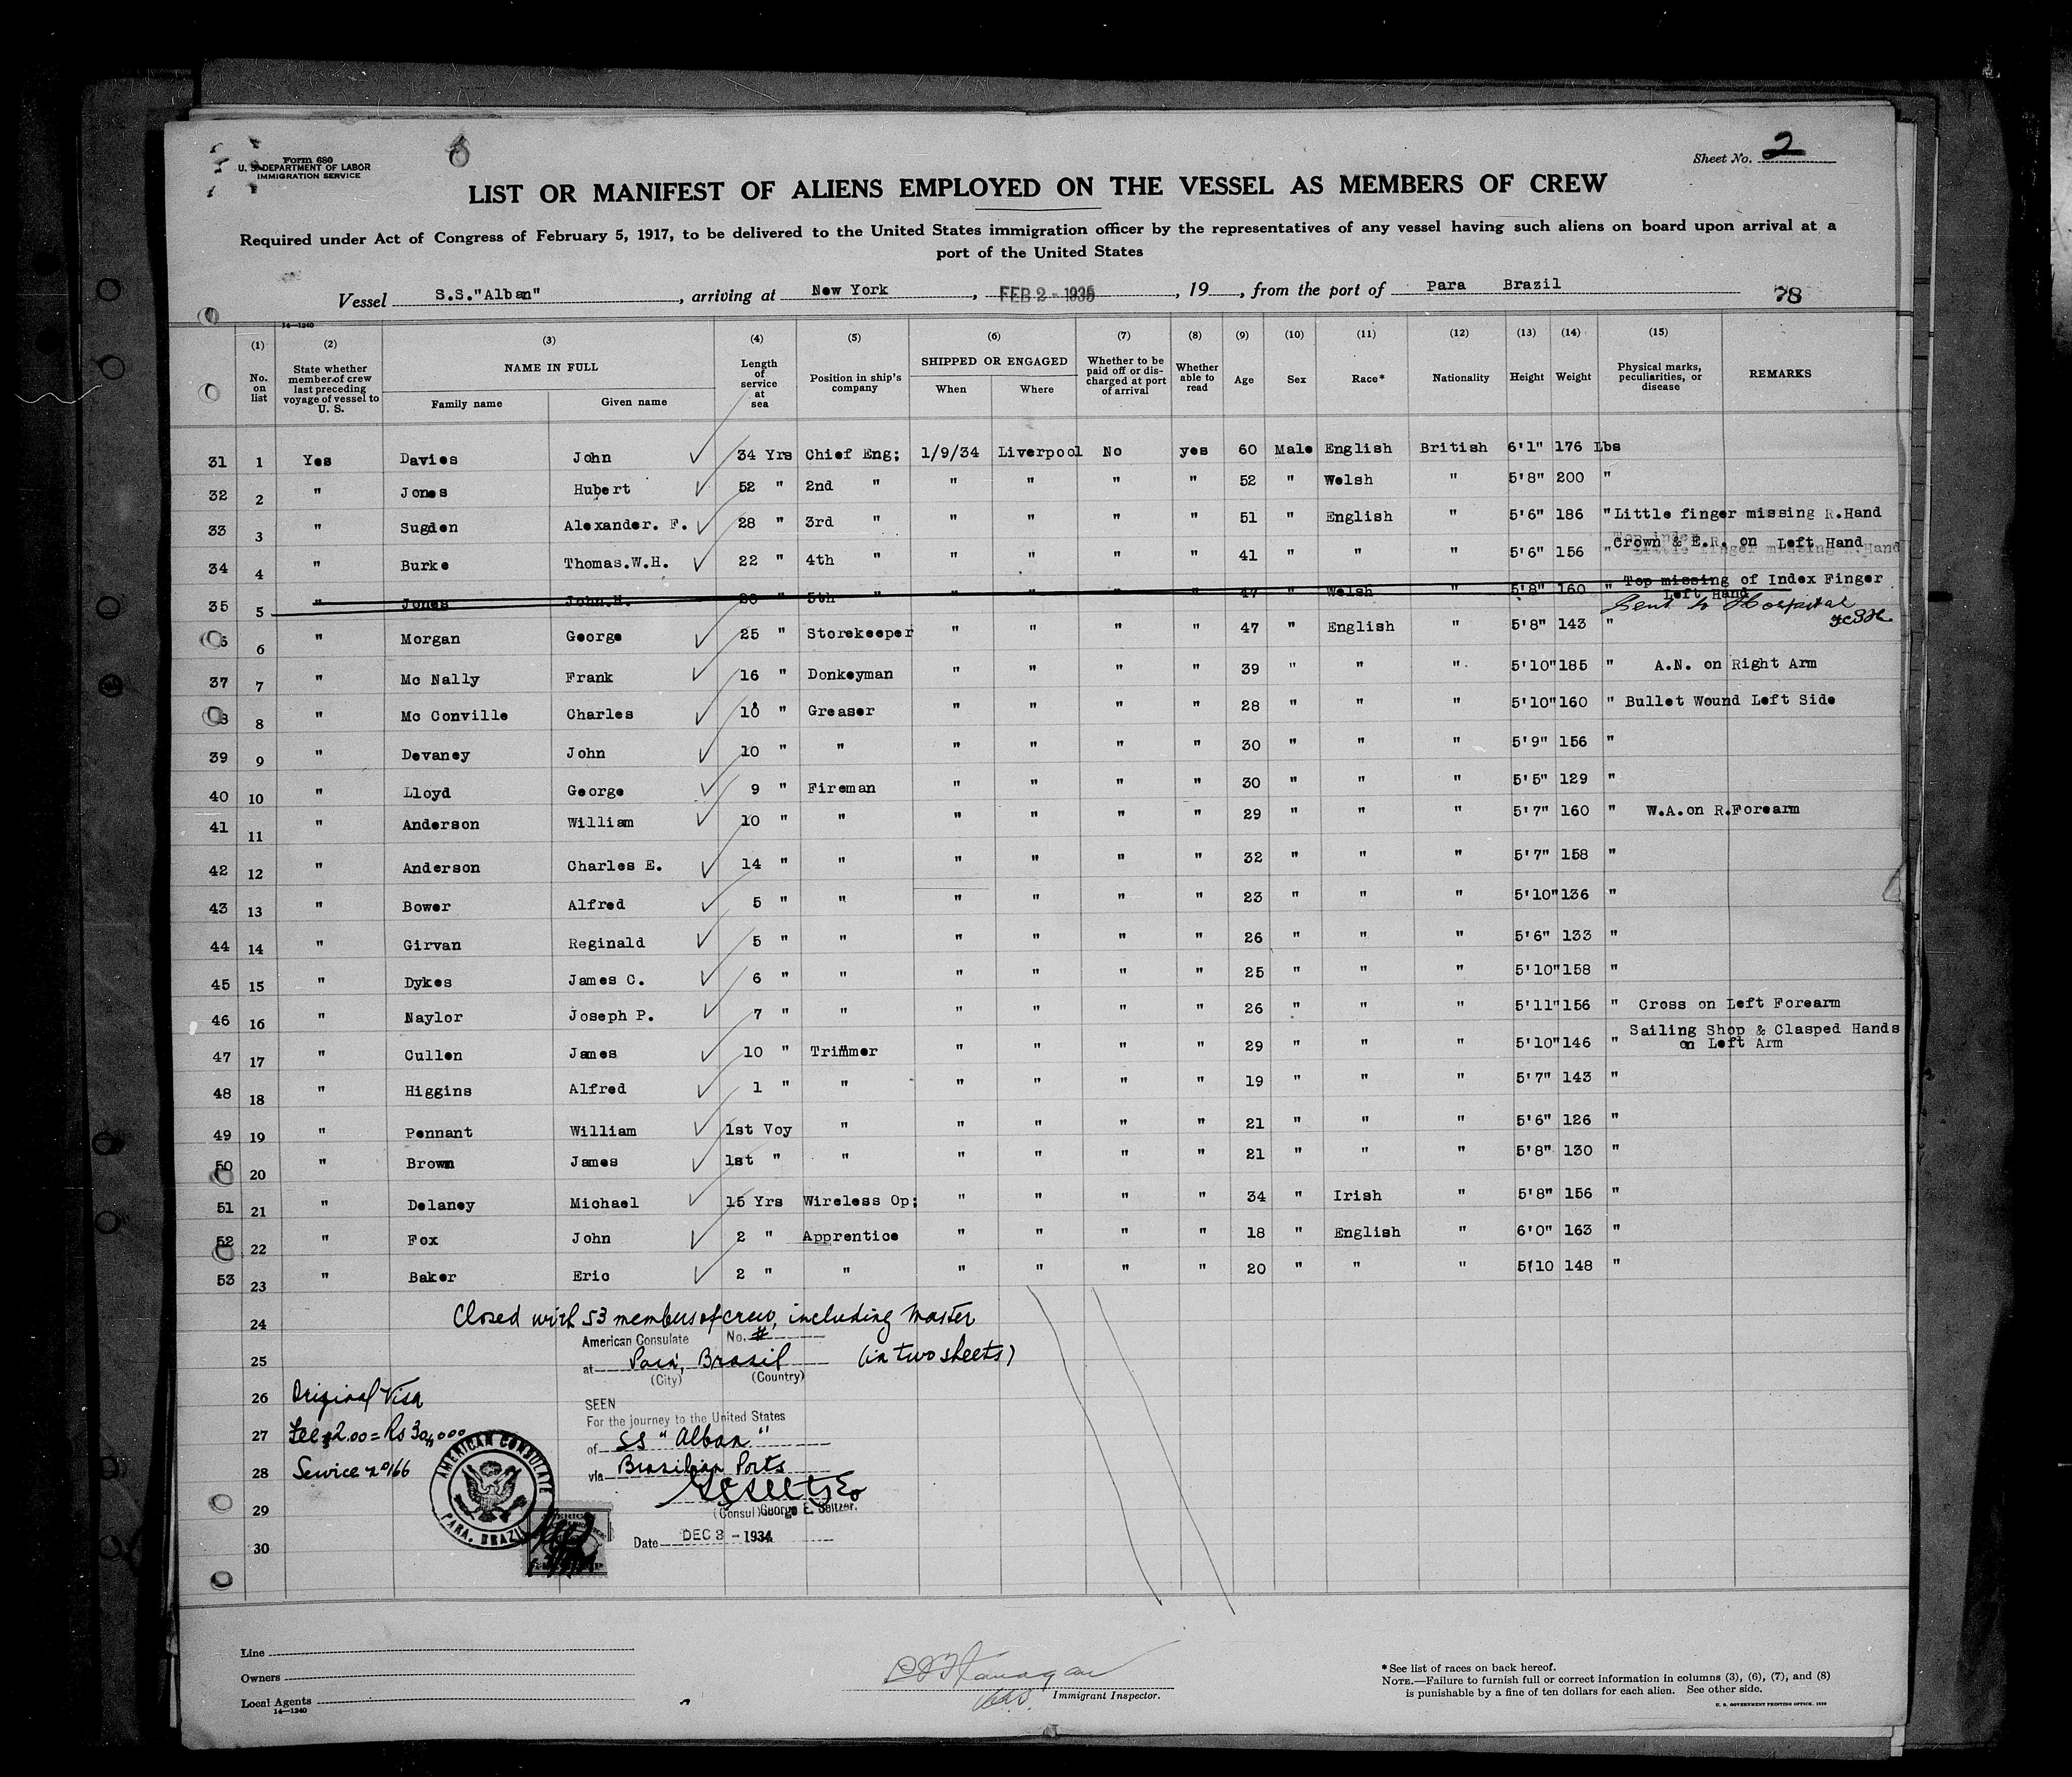 Form 680
U. S. DEPARTMENT OF LABOR
IMMIGRATION SERVICE
Sheet No. 2
LIST OR MANIFEST OF ALIENS EMPLOYED ON THE VESSEL AS MEMBERS OF CREW
Required under Act of Congress of February 5, 1917, to be delivered to the United States immigration officer by the representatives of any vessel having such aliens on board upon arrival at a
port of the United States
Vessel S.S."Alban", arriving at New York, FEB 2 - 1935, 19, from the port of Para Brazil
78
14—1240
(1) No. on list
(2) State whether member of crew last preceding voyage of vessel to U. S.
(3) NAME IN FULL Family name Given name
(4) Length of service at sea
(5) Position in ship's company
(6) SHIPPED OR ENGAGED When Where
(7) Whether to be paid off or discharged at port of arrival
(8) Whether able to read
(9) Age
(10) Sex
(11) Race*
(12) Nationality
(13) Height
(14) Weight
(15) Physical marks, peculiarities, or disease
REMARKS
31 1 Yes Davies John 34 Yrs Chief Eng; 1/9/34 Liverpool No yes 60 Male English British 6'1" 176 Lbs
32 2 " Jones Hubert 52 " 2nd " " " " " 52 " Welsh " 5'8" 200 "
33 3 " Sugden Alexander. F. 28 " 3rd " " " " " 51 " English " 5'6" 186 " Little finger missing R.Hand
34 4 " Burke Thomas.W.H. 22 " 4th " " " " " 41 " " " 5'6" 156 " Crown & E.R. on Left Hand
35 5 " Jones John.H. 28 " 5th " " " " " 47 " Welsh " 5'8" 160 " Top missing of Index Finger
Left Hand
Sent to Hospital
6 " Morgan George 25 " Storekeeper " " " " 47 " English " 5'8" 143 "
37 7 " Mc Nally Frank 16 " Donkeyman " " " " 39 " " " 5'10" 185 " A.N. on Right Arm
8 " Mc Conville Charles 10 " Greaser " " " " 28 " " " 5'10" 160 " Bullet Wound Left Side
39 9 " Devaney John 10 " " " " " " 30 " " " 5'9" 156 "
40 10 " Lloyd George 9 " Fireman " " " " 30 " " " 5'5" 129 "
41 11 " Anderson William 10 " " " " " " 29 " " " 5'7" 160 " W.A.on R.Forearm
42 12 " Anderson Charles E. 14 " " " " " " 32 " " " 5'7" 158 "
43 13 " Bower Alfred 5 " " " " " " 23 " " " 5'10" 136 "
44 14 " Girvan Reginald 5 " " " " " " 26 " " " 5'6" 133 "
45 15 " Dykes James C. 6 " " " " " " 25 " " " 5'10" 158 "
46 16 " Naylor Joseph P. 7 " " " " " " 26 " " " 5'11" 156 " Cross on Left Forearm
47 17 " Cullen James 10 " Trimmer " " " " 29 " " " 5'10" 146 " Sailing Shop & Clasped Hands
on Left Arm
48 18 " Higgins Alfred 1 " " " " " " 19 " " " 5'7" 143 "
49 19 " Pennant William 1st Voy " " " " " 21 " " " 5'6" 126 "
50 20 " Brown James 1st " " " " " " 21 " " " 5'8" 130 "
51 21 " Delaney Michael 15 Yrs Wireless Op; " " " " 34 " Irish " 5'8" 156 "
52 22 " Fox John 2 " Apprentice " " " " 18 " English " 6'0" 163 "
53 23 " Baker Eric 2 " " " " " " 20 " " " 5'10 148 "
24 Closed with 53 members of crew, including Master
American Consulate No. #
25 at Pará, Brazil (in two sheets)
(City) (Country)
26 Original Visa
SEEN
For the journey to the United States
27 Fee $2.00 = Rs 30$000
of SS "Alban"
28 Service no 166
via Brazilian Ports
29
(Consul) George E. Seltzer.
Date DEC 3 - 1934
30
AMERICAN CONSULATE
PARA, BRAZIL
Line
Owners
Local Agents
14—1240
Immigrant Inspector.
*See list of races on back hereof.
NOTE.—Failure to furnish full or correct information in columns (3), (6), (7), and (8)
is punishable by a fine of ten dollars for each alien. See other side.